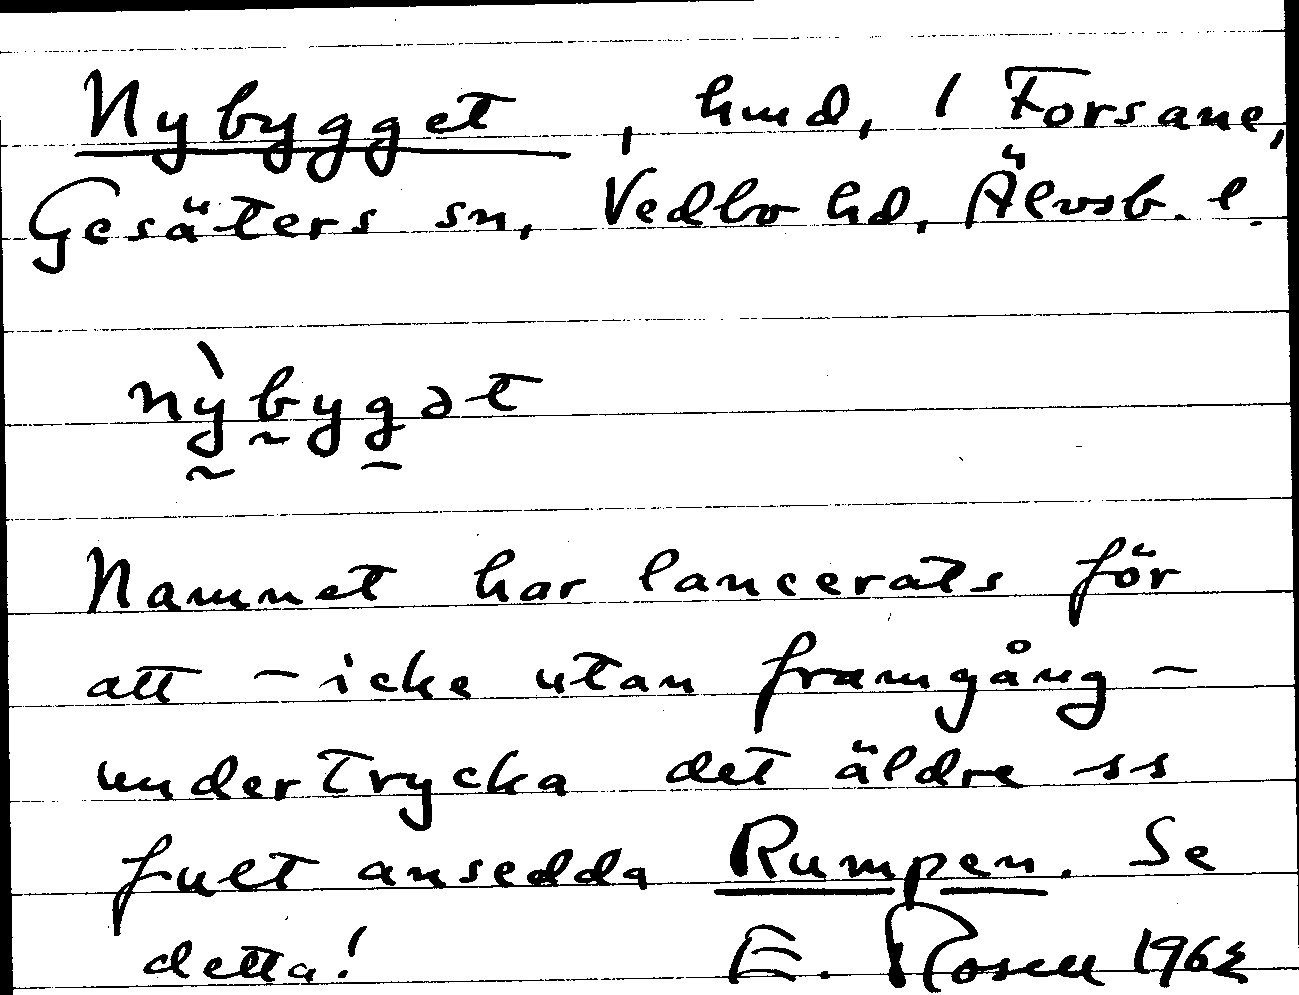 Nybygget, hmd, 1 Forsane,
Gesäters sn, Vedbo hd, Älvsb. l.
nỳbygət
Namnet har lancerats för
att – icke utan framgång –
undertrycka det äldre ss
fult ansedda Rumpen. Se
detta! E. Rosell